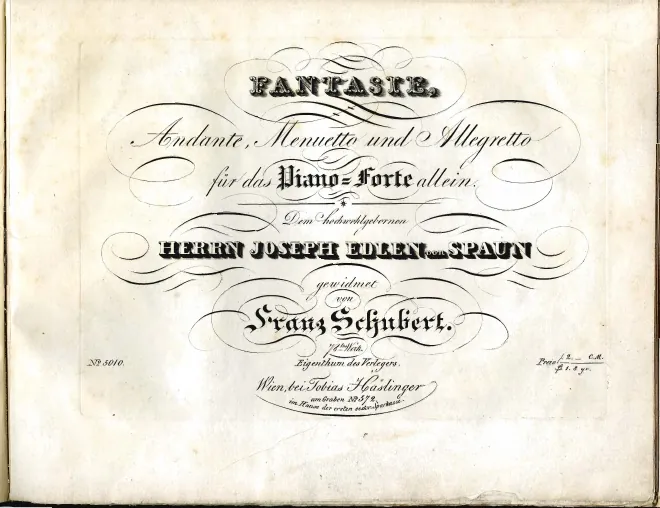 FANTASIE,
Andante, Menuetto und Allegretto
für das Piano=Forte allein.
Dem hochwohlgebornen
HERRN JOSEPH EDLEN von SPAUN
gewidmet
von
Franz Schubert.
78tes Werk.
No 5010.
Eigenthum des Verlegers.
Preis f. 2. _ C.M.
Wien, bei Tobias Haslinger
am Graben No 572.
im Hause der ersten oester. Sparkasse.